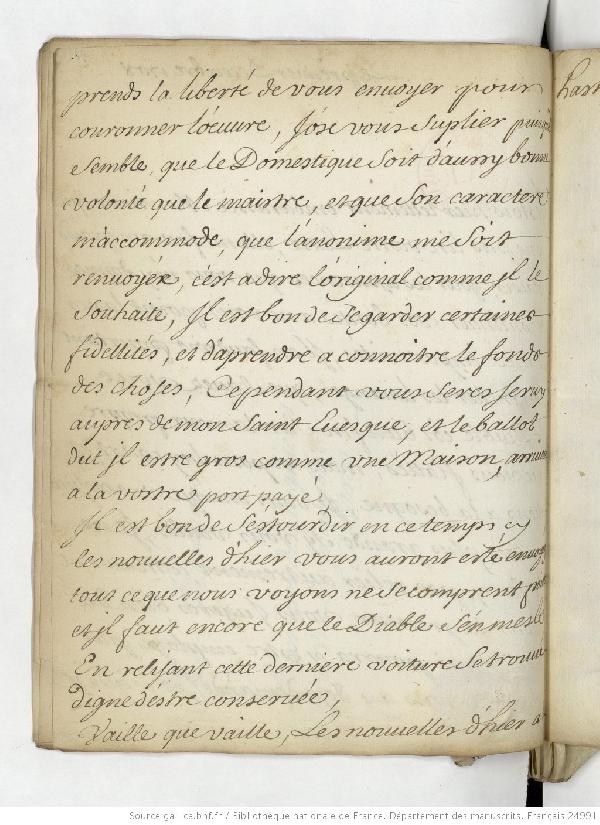 prends la liberté de vous envoyer pour
couronner lóeuure, J'óse vous suplier
semble, que le Domestique soit d'aussy bonne
volonté que le maistre, et que son caractere
m'accommode, que l'anonime me soit
renuoyée, c'est a dire l'original comme jl le
souhaite, Jl est bon de se garder certaines
fidellités, et d'aprendre a connoitre le fonds
des choses, Cependant vous seres seruy
aupres de mon Saint Euesque, et le ballot
dut jl estre gros comme vne Maison, arriuera
a la vostre port payé,
Jl est bon de s'éstourdir en ce temps cy
les nouvelles d'hier vous auront esté
tout ce que nous voyons ne se comprent
et jl faut encore que le Diable s'en mesle
En relisant cette derniere voiture se trouue
digne d'éstre conseruée,
Vaille que vaille, Les nouvelles d'hier a
hart
Source gallica.bnf.fr / Bibliothèque nationale de France. Département des manuscrits. Français 24991